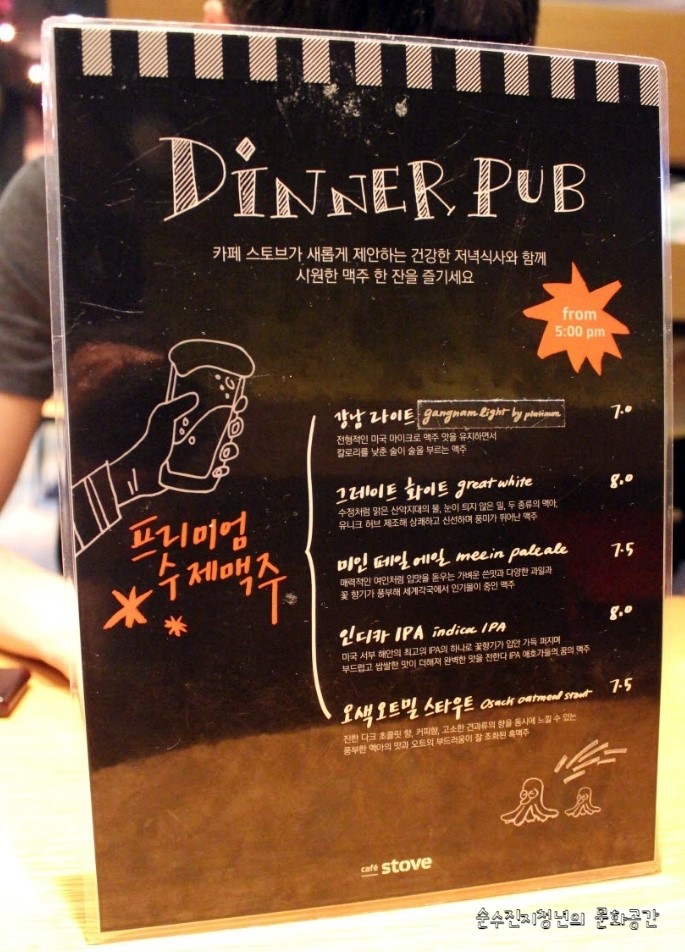 DINNER PUB
카페 스토브가 새롭게 제안하는 건강한 저녁식사와 함께
시원한 맥주 한 잔을 즐기세요
from
5:00 pm
프리미엄
수제맥주
강남 라이트 gangnam light by platinum 7.0
전형적인 미국 마이크로 맥주 맛을 유지하면서
칼로리를 낮춘 술이 술을 부르는 맥주
그레이트 화이트 great white 8.0
수정처럼 맑은 산악지대의 물, 눈이 띄지 않은 밀, 두 종류의 맥아,
유니크 허브 제조해 상쾌하고 신선하며 풍미가 뛰어난 맥주
미인 페일 에일 meein pale ale 7.5
매력적인 여인처럼 입맛을 돋우는 가벼운 쓴맛과 다양한 과일과
꽃 향기가 풍부해 세계각국에서 인기몰이 중인 맥주
인디카 IPA indica IPA 8.0
미국 서부 해안의 최고의 IPA의 하나로 꽃향기가 입안 가득 퍼지며
부드럽고 쌉쌀한 맛이 더해져 완벽한 맛을 전한다 IPA 애호가들의 꿈의 맥주
오색 오트밀 스타우트 Osack oatmeal stout 7.5
진한 다크 초콜릿 향, 커피향, 고소한 견과류의 향을 동시에 느낄 수 있는
풍부한 맥아의 맛과 오트의 부드러움이 잘 조화된 흑맥주
café stove
순수진지청년의 문화공간